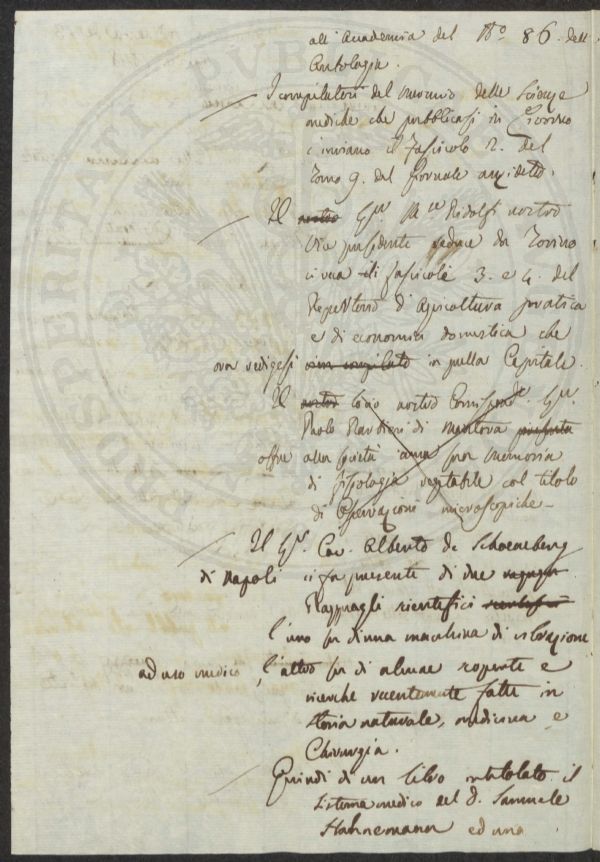 all'Accademia del No 86. dell'
Antologia.
I compilatori del
mediche che pubblicasi in Livorno
c'inviano il fascicolo 2. del
Tomo 9. del Giornale anzidetto.
Il nostro Sigr. Mse Ridolfi nostro
Vice presidente reduce da Torino
ci reca il fascicoli 3. e 4. del
Repertorio d'Agricoltura pratica
e di economia domestica che
ora redigesi in quella Capitale.
Il nostro Socio nostro Corrispondte. Sigr.
Paolo Barbieri di Mantova presenta
offre alla Società una sua memoria
di fisiologia vegetabile col titolo
di Osservazioni microscopiche
Il Sigr. Cav. Alberto de Schoeneberg
di Napoli ci fa presente di due
Ragguagli scientifici
l'uno su di una macchina di vibrazione
ad uso medico, l'altro su di alcune scoperte e
ricerche recentemente fatte in
storia naturale, medicina e
Chirurgia.
Quindi di un libro intitolato il
Sistema medico del D. Samuele
Hahnemann ed una
PROSPERITATI PUBLICAE